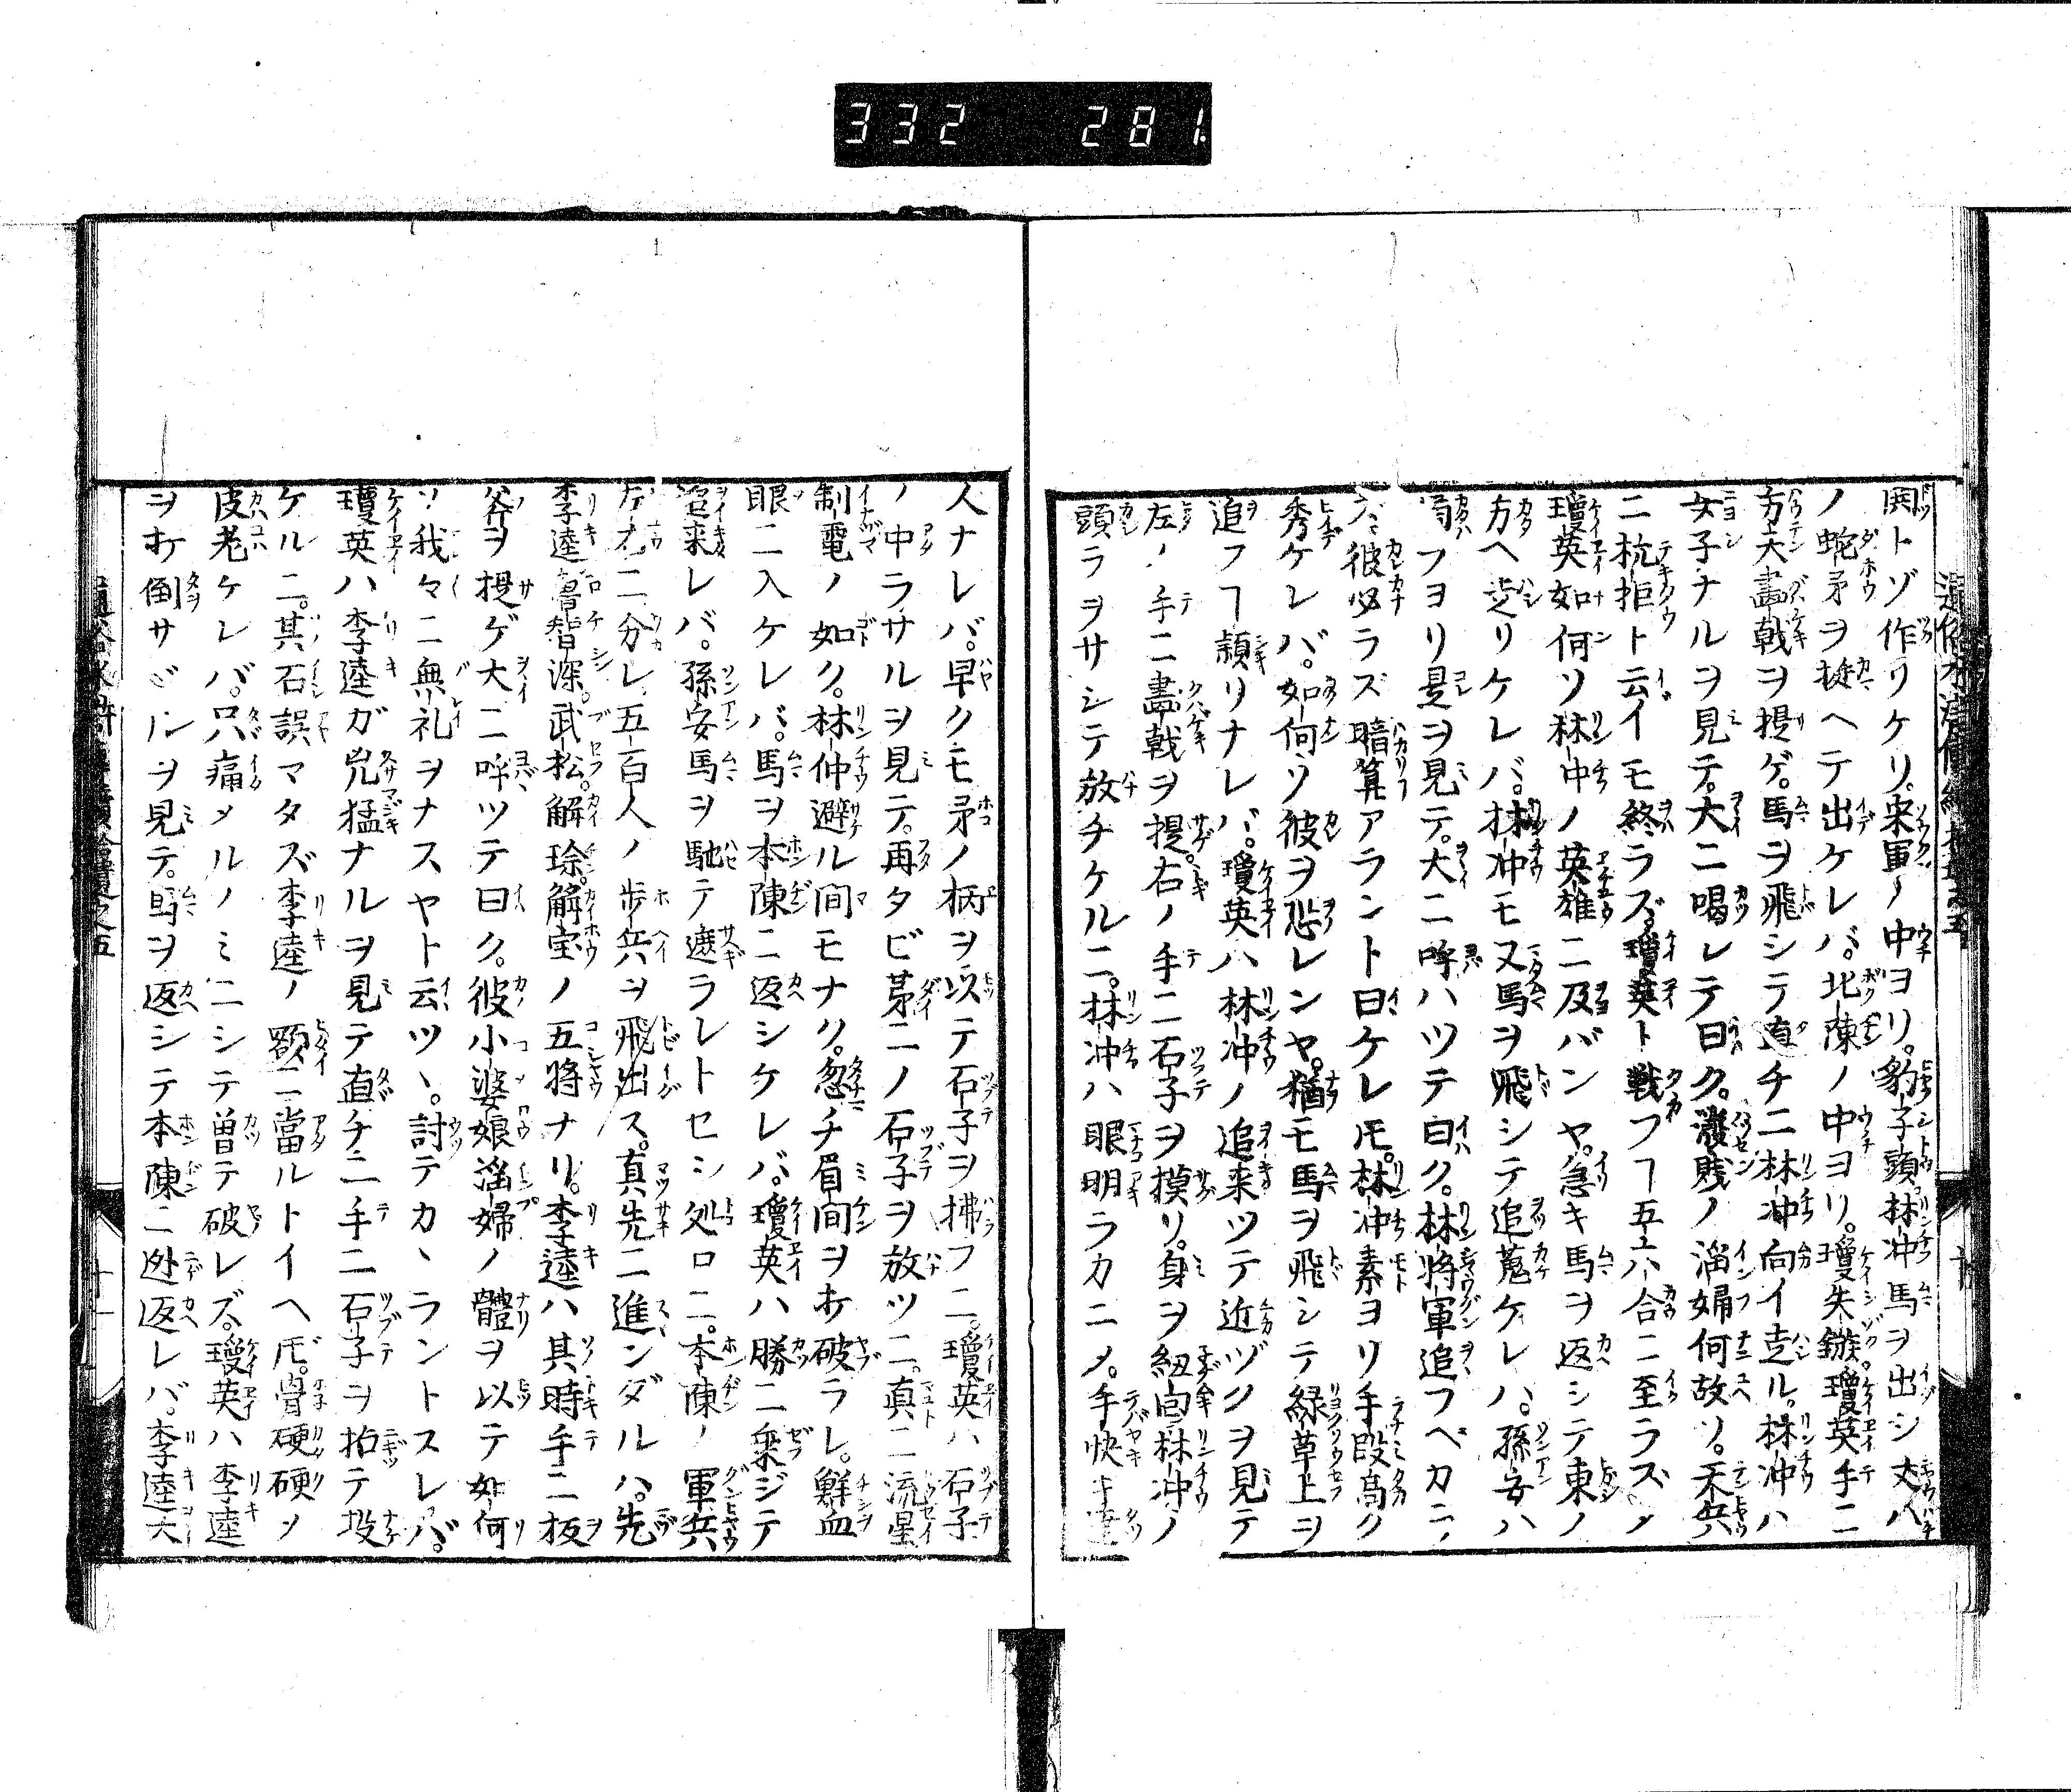 332 281
鬨トゾ作リケリ。宋軍ノ中ヨリ。豹子頭林冲馬ヲ出シ丈八
ノ蛇矛ヲ挺ヘテ出ケレバ。北陳ノ中ヨリ。瓊矢鏃瓊英手ニ
方天畫戟ヲ提ゲ。馬ヲ飛シテ直チニ林冲向イ走ル。林冲ハ
女子ナルヲ見テ。大ニ喝レテ曰ク。潑賤ノ淫婦何故ソ。天兵
ニ抗拒ト云イモ終ラズ。瓊英ト戦フヿ五六合ニ至ラズメ
瓊英如何ソ林冲ノ英雄ニ及バンヤ。急キ馬ヲ返シテ東ノ
方ヘ走リケレバ。林冲モ又馬ヲ飛シテ追蒐ケレハ。孫安ハ
フヨリ是ヲ見テ。大ニ呼ハツテ曰ク。林将軍追フベカニ
彼必ラズ暗算アラント曰ケレ𪜈。林冲素ヨリ手段高ク
秀ケレバ。如何ゾ彼ヲ恐レンヤ。猶モ馬ヲ飛シテ緑草上ヲ
追フヿ頻リナレバ。瓊英ハ林冲ノ追来ツテ近ヅクヲ見テ
左ノ手ニ畫戟ヲ提。右ノ手ニ石子ヲ摸リ。身ヲ紐回林冲ノ
頭ラヲサシテ放チケルニ。林冲ハ眼明ラカニメ。手快キ達
人ナレバ。早クモ矛ノ柄ヲ以テ石子ヲ拂フニ。瓊英ハ石子
ノ中ラサルヲ見テ。再タビ苐二ノ石子ヲ放ツニ。真ニ流星
制電ノ如ク。林仲避ル間モナク。忽チ眉間ヲ打破ラレ。鮮血
眼ニ入ケレバ。馬ヲ本陳ニ返シケレバ。瓊英ハ勝ニ乗ジテ
追来レバ。孫安馬ヲ馳テ遮ラレトセシ処ロニ。本陳ノ軍兵
左右ニ分レ五百人ノ歩兵ヲ飛出ス。真先ニ進ンダルハ。先
李逵魯智深。武松。解珍。解宝ノ五将ナリ。李逵ハ其時手ニ板
斧ヲ提ゲ大ニ呼ツテ曰ク。彼小婆娘淫婦ノ體ヲ以テ如何
ソ我々ニ無礼ヲナスヤト云ツヽ。討テカヽラントスレバ。
瓊英ハ李逵ガ兇猛ナルヲ見テ直チニ手ニ石子ヲ拾テ投
ケルニ。其石誤マタズ李逵ノ額ニ當ルトイヘ𪜈。骨硬硬ソ
皮老ケレバ。只痛メルノミニシテ曽テ破レズ。瓊英ハ李逵
ヲ打倒サヾルヲ見テ。馬ヲ返シテ本陳ニ迯返レバ。李逵大